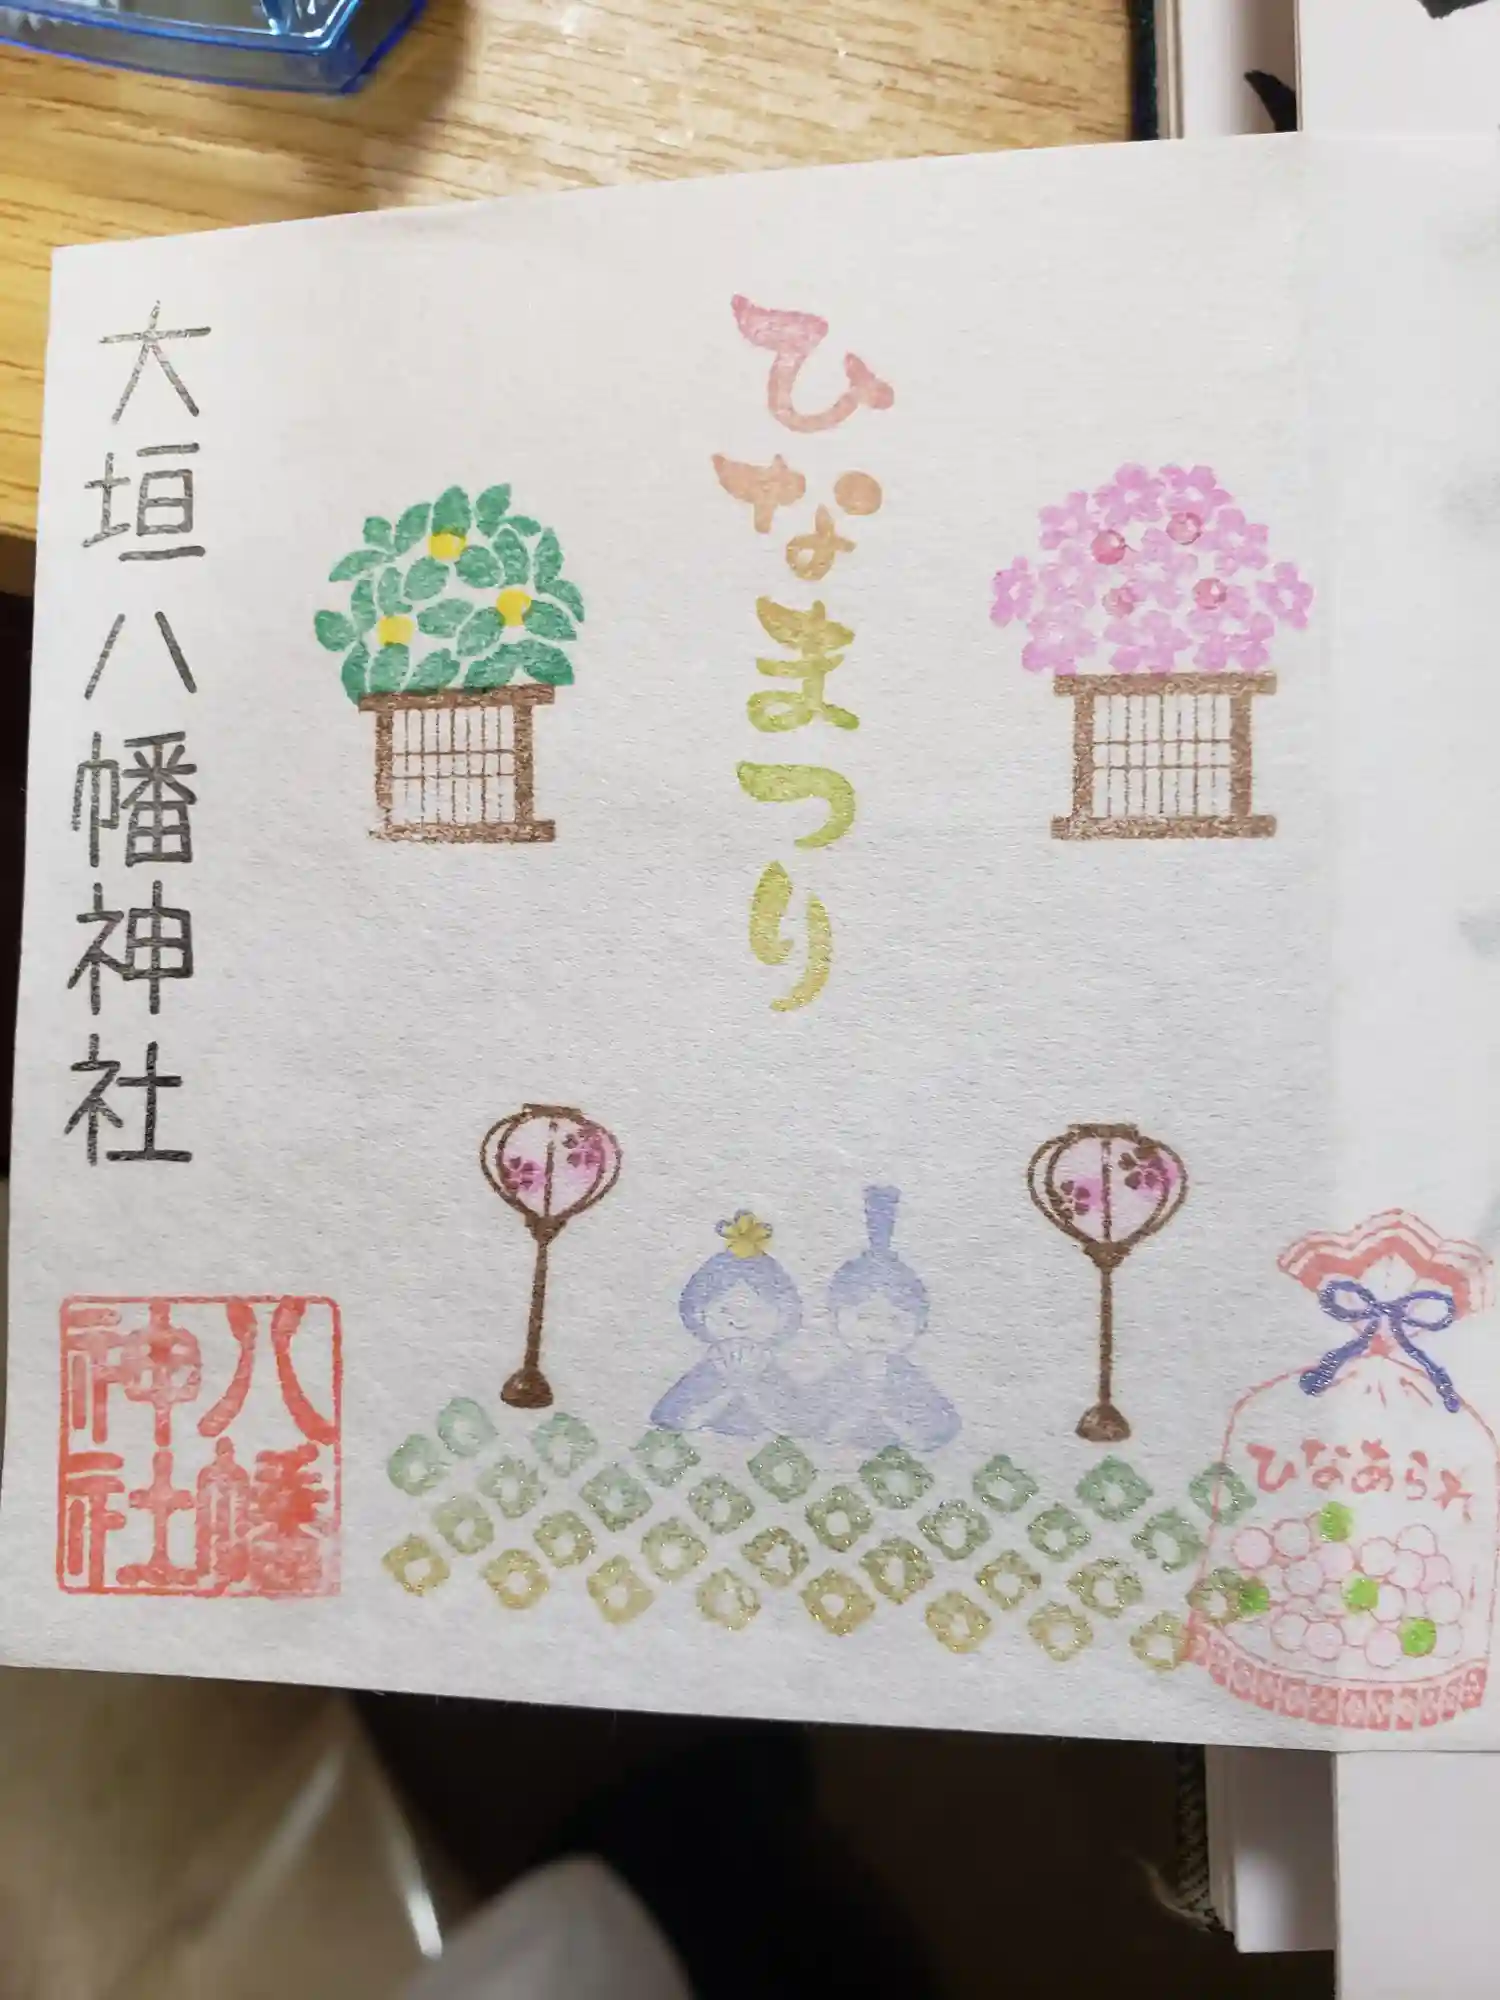 ひなまつり
大垣八幡神社
八幡
神社
ひなあられ